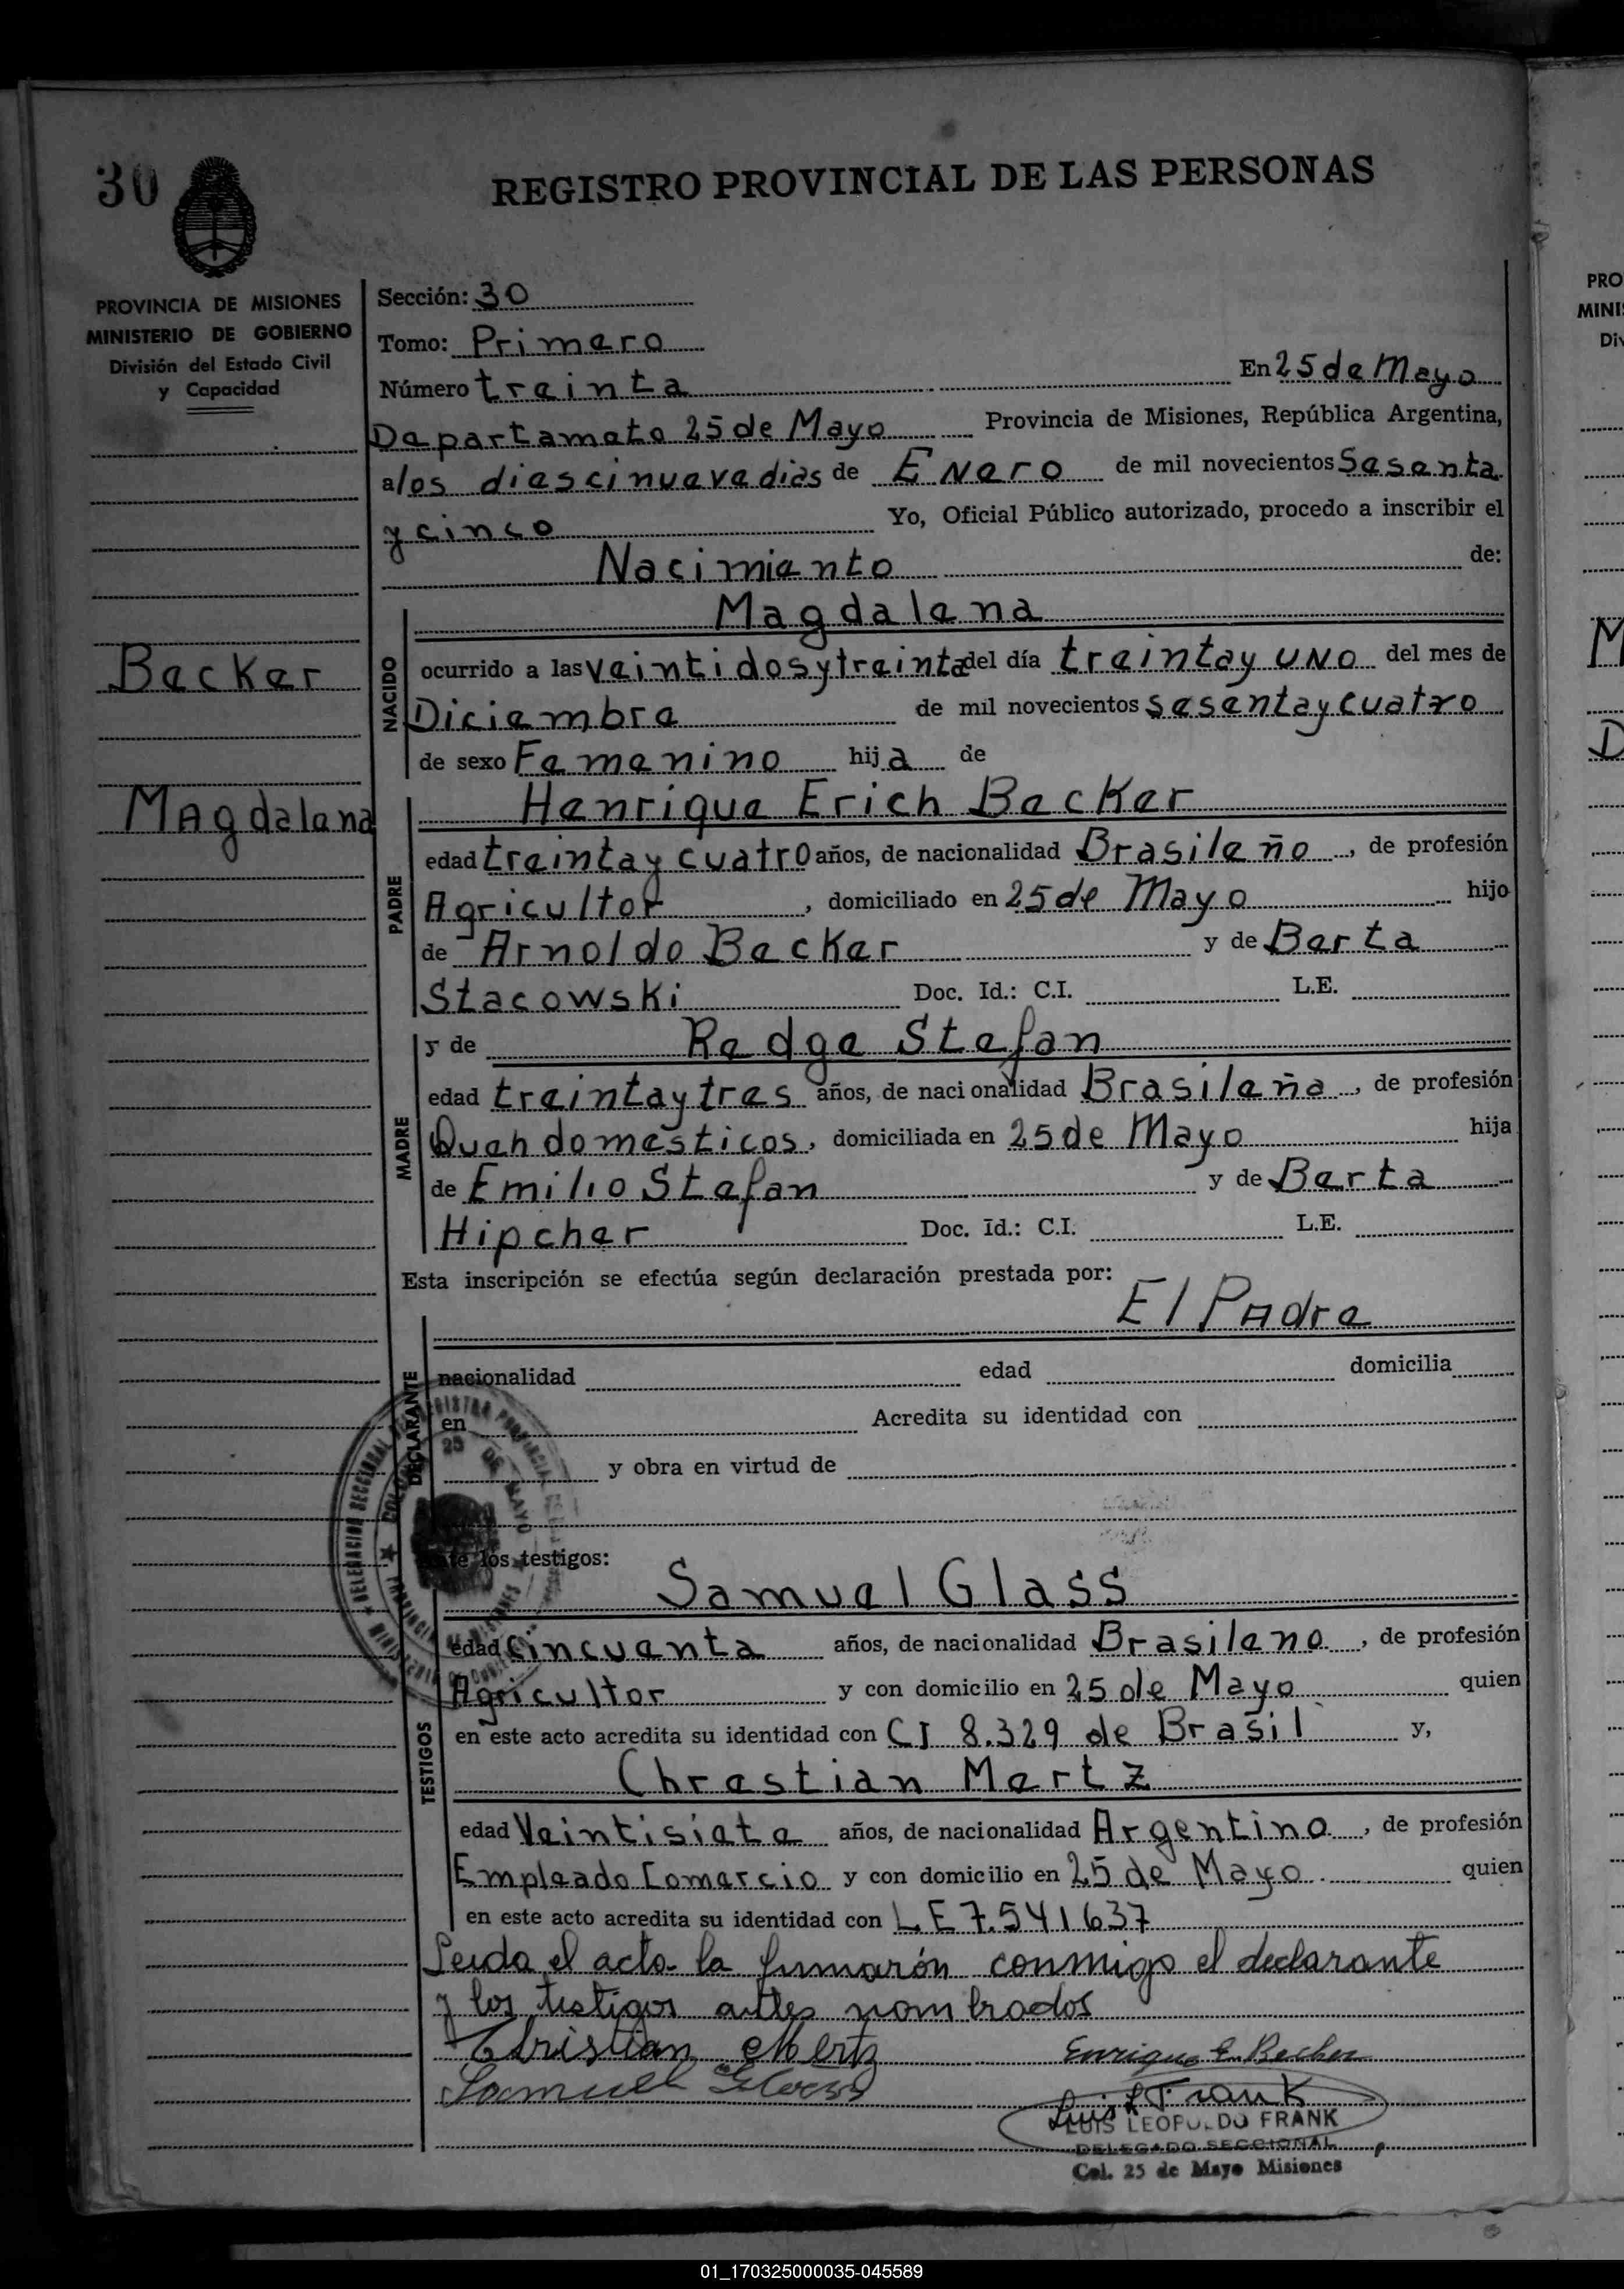 30
REGISTRO PROVINCIAL DE LAS PERSONAS
PROVINCIA DE MISIONES
MINISTERIO DE GOBIERNO
División del Estado Civil
y Capacidad
Becker
Magdalena
Sección: 30
Tomo: Primero
Número treinta En 25 de Mayo
Departameto 25 de Mayo Provincia de Misiones, República Argentina,
a los diescinueve dias de Enero de mil novecientos Sesenta
y cinco Yo, Oficial Público autorizado, procedo a inscribir el
Nacimiento de:
NACIDO
Magdalena
ocurrido a las veintidos y treinta del día treinta y uno del mes de
Diciembre de mil novecientos sesenta y cuatro
de sexo Femenino hija de
PADRE
Henrique Erich Becker
edad treinta y cuatro años, de nacionalidad Brasileño, de profesión
Agricultor, domiciliado en 25 de Mayo hijo
de Arnoldo Becker y de Berta
Stacowski Doc. Id.: C.I. L.E.
MADRE
y de Redge Stefan
edad treinta y tres años, de nacionalidad Brasileña, de profesión
Queh domesticos, domiciliada en 25 de Mayo hija
de Emilio Stefan y de Berta
Hipcher Doc. Id.: C.I. L.E.
Esta inscripción se efectúa según declaración prestada por:
El Padre
DECLARANTE
nacionalidad edad domicilia
en Acredita su identidad con
y obra en virtud de
los testigos:
TESTIGOS
Samuel Glass
edad cincuenta años, de nacionalidad Brasileno, de profesión
Agricultor y con domicilio en 25 de Mayo quien
en este acto acredita su identidad con CI 8.329 de Brasil y,
Chrestian Mertz
edad Veintisiete años, de nacionalidad Argentino, de profesión
Empleado Comercio y con domicilio en 25 de Mayo quien
en este acto acredita su identidad con LE 7.541637
Leida el acta la firmarón conmigo el declarante
y los testigos antes nombrados
Christian Mertz Enrique E. Becker
Samuel Glass Luis L Frank
LUIS LEOPOLDO FRANK
DELEGADO SECCIONAL
Col. 25 de Mayo Misiones
PRO
MINI
Div
M
D
01_170325000035-045589